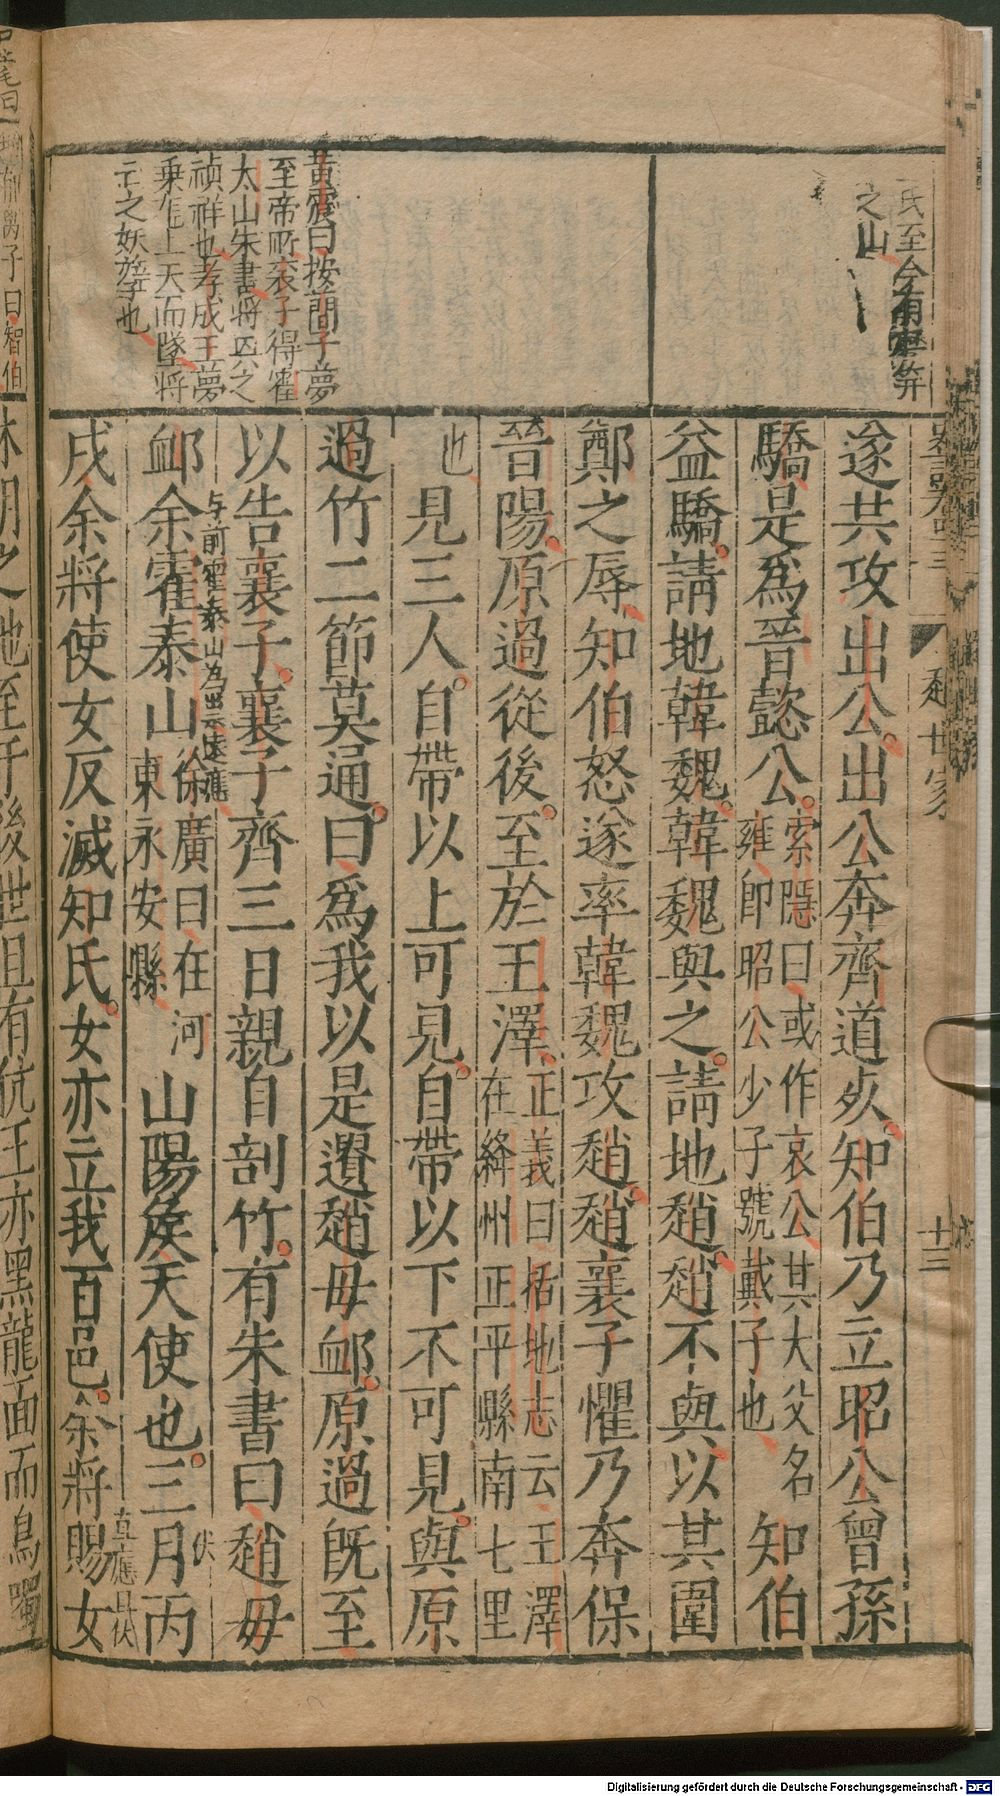 氏至今有
之山
黃震曰按簡子夢
至帝所襄子得霍
太山朱書將興之
禎祥也孝成王夢
乗飛上天而墜將
亡之妖孽也
趙世家
十三
遂共攻出公。出公奔齊道死。知伯乃立昭公曾孫
驕是爲晉懿公。
索隱曰或作哀公其大父名
雍即昭公少子號戴子也
知伯
益驕。請地韓魏。韓魏與之。請地趙。趙不與以其圍
鄭之辱。知伯怒遂率韓魏攻趙。趙襄子懼乃奔保
晉陽。原過從後。至於王澤。
正義曰括地志云王澤
在絳州正平縣南七里
也
見三人。自帶以上可見。自帶以下不可見。與原
過竹二節莫通。曰爲我以是遺趙毋卹。原過旣至
以告襄子。襄子齊三日親自剖竹。有朱書曰趙毋
与前霍泰山為出示遠應
卹余霍泰山
徐廣曰在河
東永安縣
山陽侯天使也。三月丙
伏
戌余將使女反滅知氏。女亦立我百邑。余將賜女
林胡之地至于後世且有伉王亦黑龍面而鳥噣
郁離子曰智伯
Digitalisierung gefördert durch die Deutsche Forschungsgemeinschaft - DFG